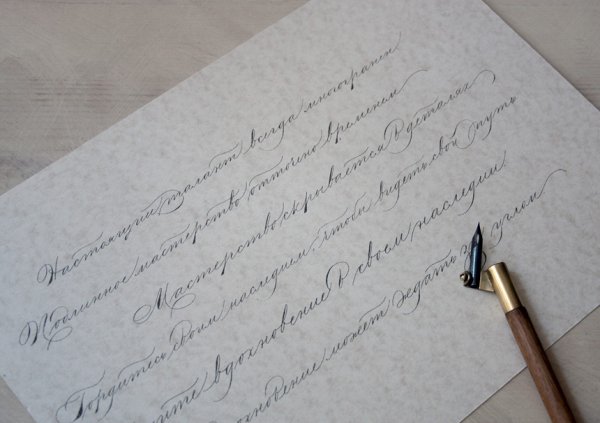 Настоящий талант всегда многогранен
Подлинное мастерство отточено временем
Мастерство скрывается в деталях
Гордитесь своим наследием, чтобы видеть свой путь
вдохновение в своем наследии
может ждать за углом